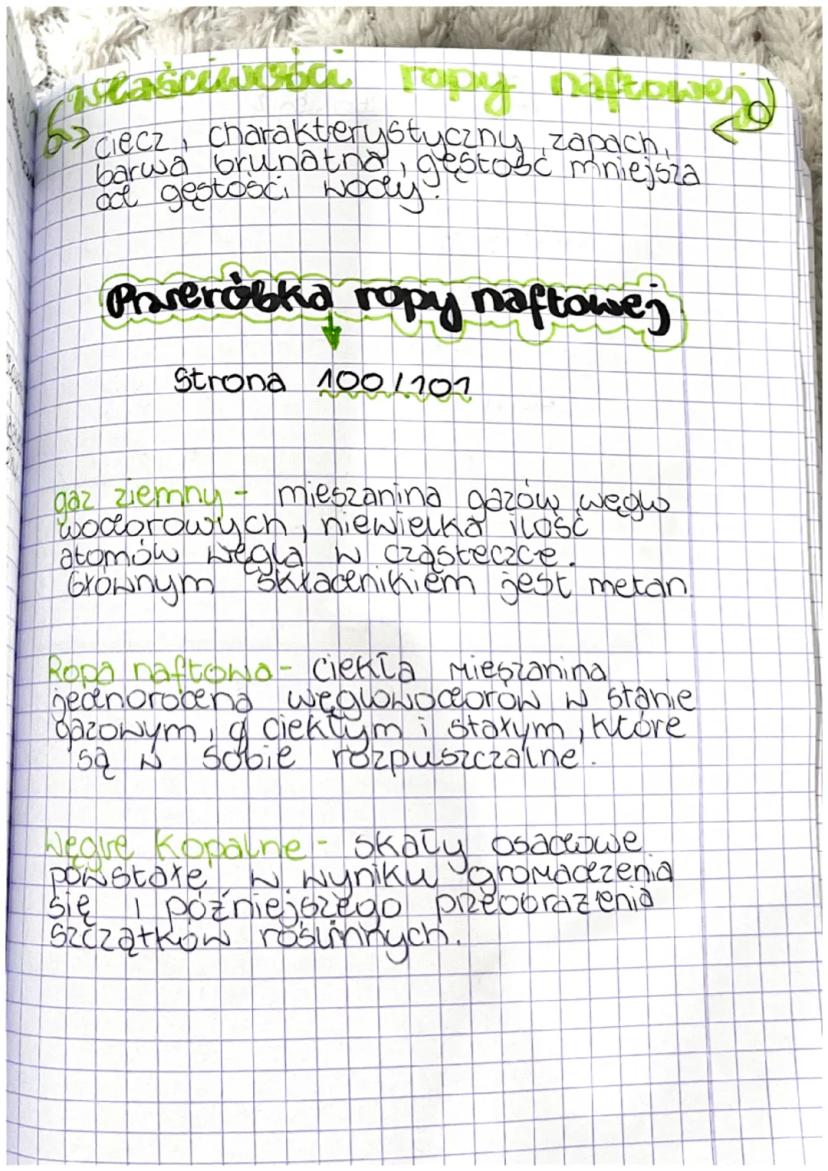 właściwości ropy naftowej
ciecz, charakterystyczny zapach,
barwa brunatna, gęstość mniejsza
od gęstości wody.
Przeróbka ropy naftowej
Strona 100/101
gaz ziemny - mieszanina gazów węglo
wodorowych, niewielka ilość
atomów węgla w cząsteczce.
Głównym składnikiem jest metan.
Ropa naftowa - ciekła mieszanina
jednorodna węglowodorów w stanie
gazowym, ciekłym i stałym, które
są w sobie rozpuszczalne.
Węgle kopalne - skały osadowe
powstałe w wyniku gromadzenia
się i późniejszego przeobrażenia
szczątków roślinnych.